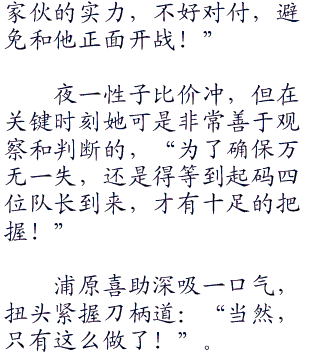 家伙的实力，不好对付，避
免和他正面开战！”
夜一性子比价冲，但在
关键时刻她可是非常善于观
察和判断的，“为了确保万
无一失，还是得等到起码四
位队长到来，才有十足的把
握！”
浦原喜助深吸一口气，
扭头紧握刀柄道：“当然，
只有这么做了！”。